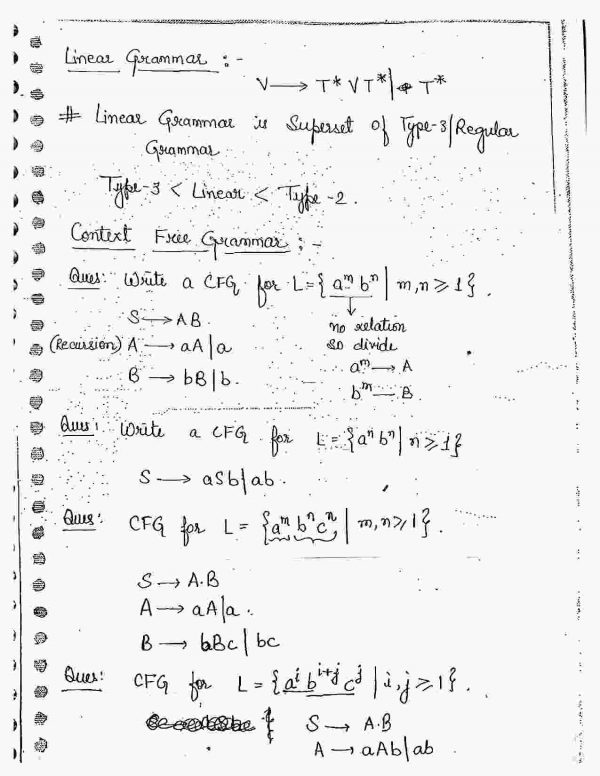 Linear Grammar :-
V → T* V T* | T*
# Linear Grammar is Superset of Type-3/Regular
Grammar
Type-3 < Linear < Type-2.
Context Free Grammar :-
Ques: Write a CFG for L = { aᵐ bⁿ | m,n ≥ 1 }.
S → AB
no relation
so divide
(Recursion) A → aA | a
aᵐ → A
B → bB | b.
bᵐ — B
Ques: Write a CFG for L = {aⁿ bⁿ | n ≥ 1}
S → aSb | ab.
Ques: CFG for L = {aᵐ bⁿ cⁿ | m,n ≥ 1}.
S → A.B
A → aA | a.
B → bBc | bc
Ques: CFG for L = {aⁱ bⁱ⁺ʲ cʲ | i,j ≥ 1}.
S → A.B
A → aAb | ab.